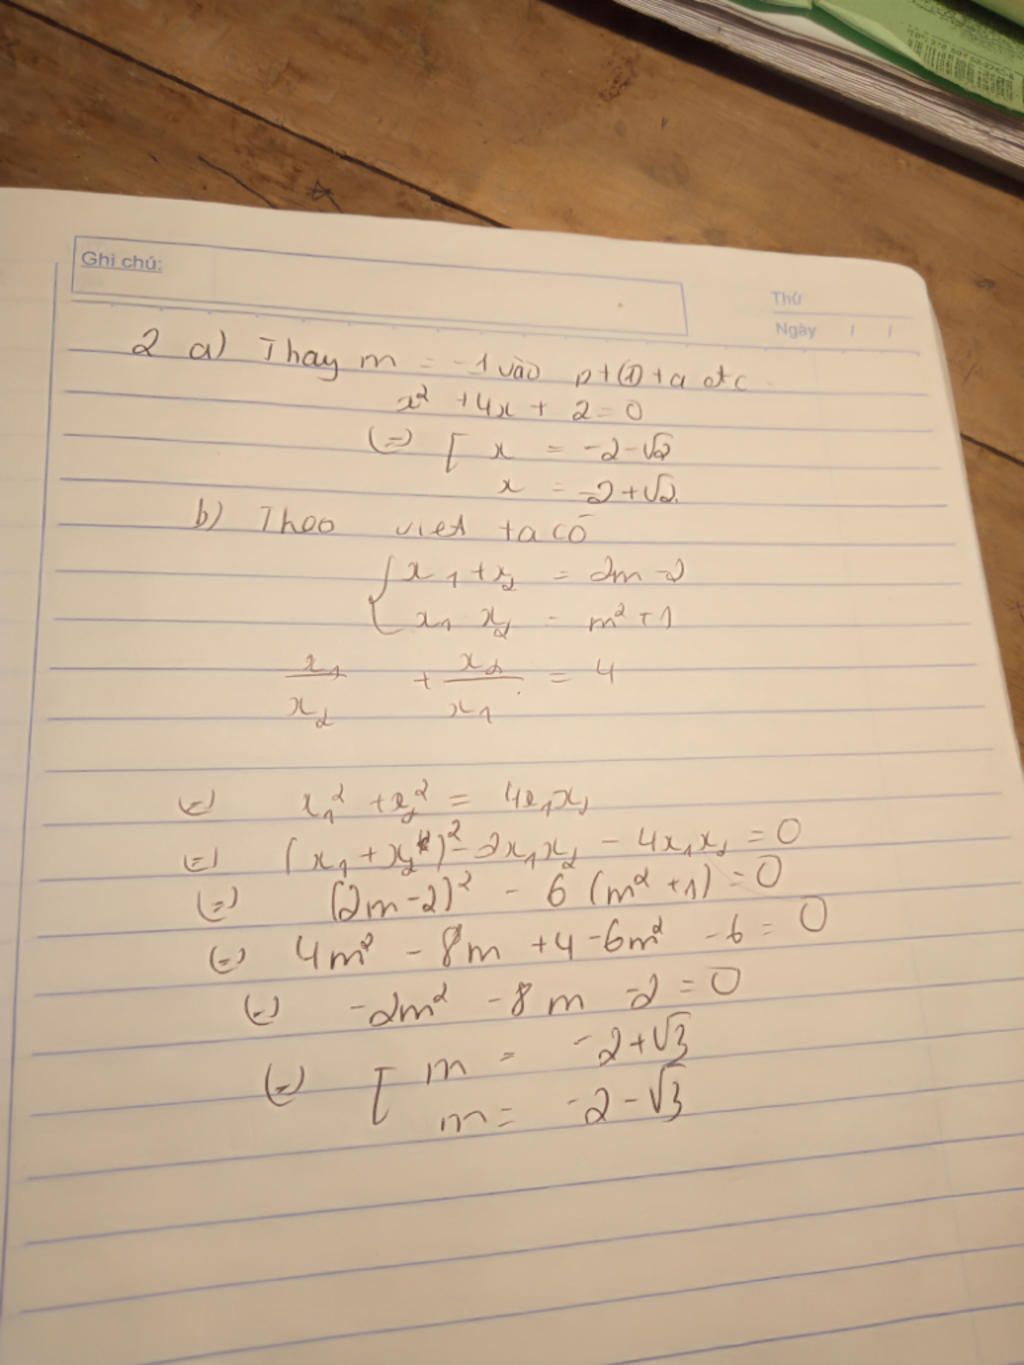 Ghi chú:
Thứ
Ngày / /
2 a) Thay m = -1 vào pt(1) ta đtc
x² + 4x + 2 = 0
(=) [ x = -2-√2
x = -2+√2
b) Theo viet ta có
{ x₁ + x₂ = 2m - 2
x₁ x₂ = m² + 1
x₁/x₂ + x₂/x₁ = 4
(=) x₁² + x₂² = 4x₁x₂
(=) (x₁ + x₂)² - 2x₁x₂ - 4x₁x₂ = 0
(=) (2m-2)² - 6 (m² + 1) = 0
(=) 4m² - 8m + 4 - 6m² - 6 = 0
(=) -2m² - 8m - 2 = 0
(=) [ m = -2+√3
m = -2-√3